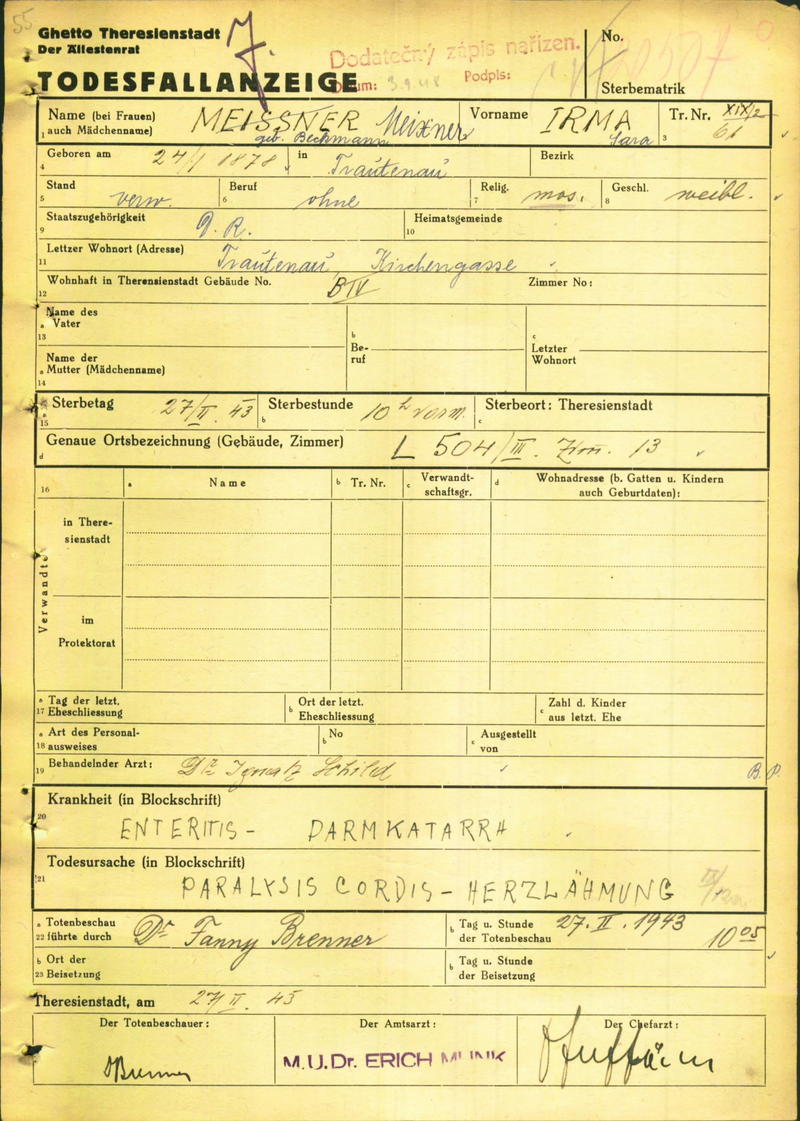 55
Ghetto Theresienstadt
Der Ältestenrat
J.
Dodatečný zápis nařízen.
Datum: 3.9.48 Podpis:
No.
TODESFALLANZEIGE
Sterbematrik
Name (bei Frauen) MEISSNER Meixner Vorname IRMA Tr. Nr. XIX/2
1 auch Mädchenname) geb. Beckmann Sara 3 61
Geboren am 24/I 1878 in Trautenau Bezirk
4
Stand verw. Beruf ohne Relig. mos. Geschl. weibl.
5 6 7 8
Staatszugehörigkeit D. R. Heimatsgemeinde
9 10
Lettzer Wohnort (Adresse) Trautenau, Kirchengasse
11
Wohnhaft in Theresienstadt Gebäude No. B IV Zimmer No:
12
Name des
a Vater
13
b
Be-
ruf
c
Letzter
Wohnort
Name der
a Mutter (Mädchenname)
14
a Sterbetag 27/II 43 Sterbestunde 10 h vorm. Sterbeort: Theresienstadt
15 b c
Genaue Ortsbezeichnung (Gebäude, Zimmer) L 504/III. Zim. 13
d
16 a Name b Tr. Nr. c Verwandt-
schaftsgr. d Wohnadresse (b. Gatten u. Kindern
auch Geburtdaten):
Verwandte
in There-
sienstadt
im
Protektorat
a Tag der letzt.
17 Eheschliessung
b Ort der letzt.
Eheschliessung
c Zahl d. Kinder
aus letzt. Ehe
a Art des Personal-
18 ausweises
b No
c Ausgestellt
von
19 Behandelnder Arzt: Dr. Ignatz Schild B. P.
Krankheit (in Blockschrift)
20
ENTERITIS - DARMKATARRH
Todesursache (in Blockschrift)
21
PARALYSIS CORDIS - HERZLÄHMUNG
a Totenbeschau
22 führte durch Dr Fanny Brenner
b Tag u. Stunde
der Totenbeschau 27. II. 1943 10 05
b Ort der
23 Beisetzung
b Tag u. Stunde
der Beisetzung
Theresienstadt, am 27/II 43
Der Totenbeschauer: Der Amtsarzt: Der Chefarzt:
Brenner M.U.Dr. ERICH MUNK